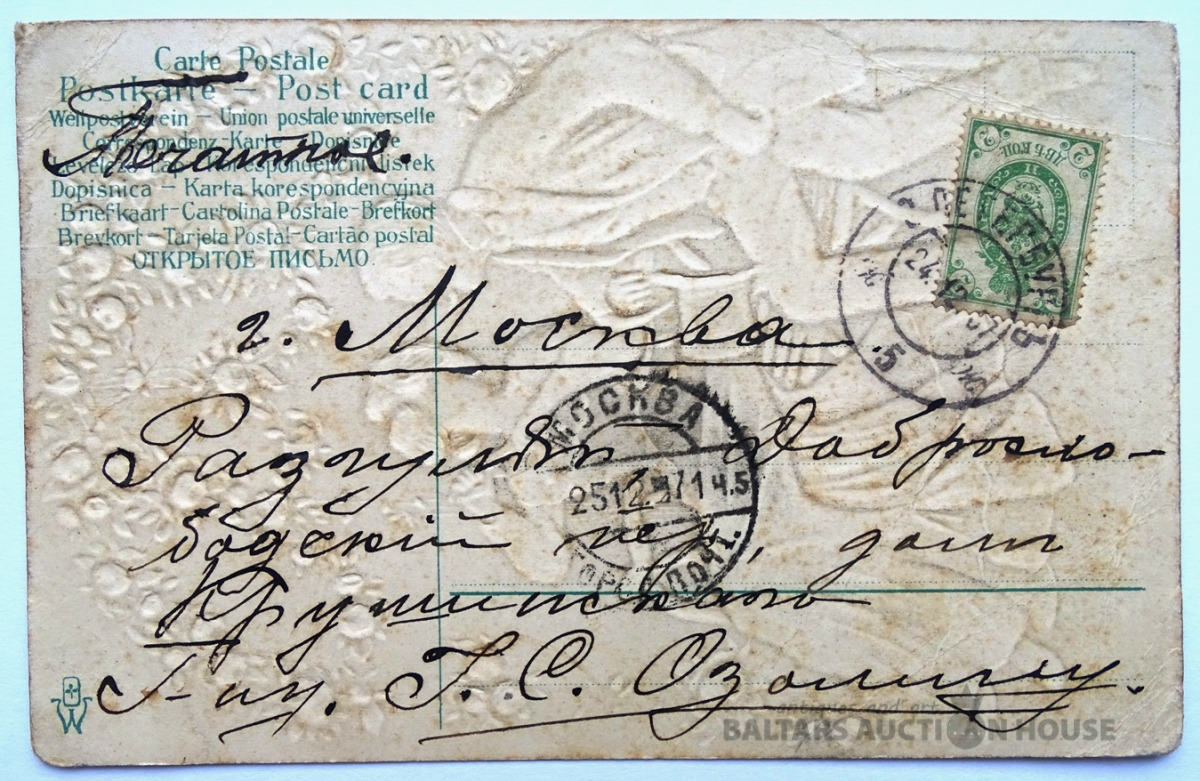 Carte Postale
Postkarte – Post card
Weltpostverein – Union postale universelle
Correspondenz-Karte – Dopisnice
Levelező-Lap – korespondenční lístek
Dopisnica – Karta korespondencyjna
Briefkaart – Cartolina Postale – Brefkort
Brevkort – Tarjeta Postal – Cartão postal
ОТКРЫТОЕ ПИСЬМО
Печатное.
2 ДВѢ КОП. 2
24.12.07
5
г. Москва
МОСКВА
Разгуляй Добросло-
25 12 07 1 Ч.5
бодскій пер, домъ
ПОЧТ.
Крушинскаго
Г-ну. Г. С. Озолину.
antiques and art
BALTARS AUCTION HOUSE